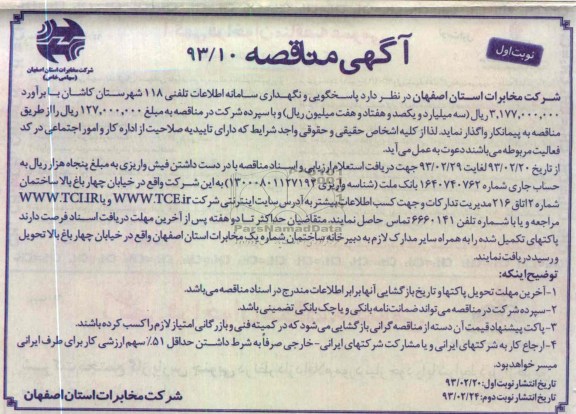 نوبت اول
آگهی مناقصه ۹۳/۱۰
شرکت مخابرات استان اصفهان
(سهامی خاص)
شرکت مخابرات استان اصفهان در نظر دارد پاسخگویی و نگهداری سامانه اطلاعات تلفنی ۱۱۸ شهرستان کاشان با برآورد
۳,۱۷۷,۰۰۰,۰۰۰ ریال (سه میلیارد و یکصد و هفتاد و هفت میلیون ریال) و با سپرده شرکت در مناقصه به مبلغ ۱۲۷,۰۰۰,۰۰۰ ریال را از طریق
مناقصه به پیمانکار واگذار نماید. لذا از کلیه اشخاص حقیقی و حقوقی واجد شرایط که دارای تاییدیه صلاحیت از اداره کار و امور اجتماعی در کد
فعالیت مربوطه می‌باشند دعوت به عمل می‌آید.
از تاریخ ۹۳/۰۲/۲۰ لغایت ۹۳/۰۲/۲۹ جهت دریافت استعلام ارزیابی و اسناد مناقصه با در دست داشتن فیش واریزی به مبلغ پنجاه هزار ریال به
حساب جاری شماره ۱۶۴۰۷۴۰۷۶۲ بانک ملت (شناسه واریزی ) به این شرکت واقع در خیابان چهارباغ بالا ساختمان
شماره ۲ اتاق ۲۱۶ مدیریت تدارکات و جهت کسب اطلاعات بیشتر به آدرس سایت اینترنتی شرکت WWW.TCE.ir و یا WWW.TCI.IR
مراجعه و یا با شماره تلفن ۶۶۶۰۱۴۱ تماس حاصل نمایند. متقاضیان حداکثر تا دو هفته پس از آخرین مهلت دریافت اسناد فرصت دارند
پاکتهای تکمیل شده را به همراه سایر مدارک لازم به دبیرخانه ساختمان شماره یک مخابرات استان اصفهان واقع در خیابان چهارباغ بالا تحویل
و رسید دریافت نمایند.
توضیح اینکه:
۱- آخرین مهلت تحویل پاکتها و تاریخ بازگشایی آنها برابر اطلاعات مندرج در اسناد مناقصه می‌باشد.
۲- سپرده شرکت در مناقصه می‌تواند ضمانت‌نامه بانکی و یا چک بانکی تضمینی باشد.
۳- پاکت پیشنهاد قیمت آن دسته از مناقصه گرانی بازگشایی می‌شود که در کمیته فنی و بازرگانی امتیاز لازم را کسب کرده باشند.
۴- ارجاع کار به شرکتهای ایرانی و یا مشارکت شرکتهای ایرانی-خارجی صرفاً به شرط داشتن حداقل ۵۱٪ سهم ارزشی کار برای طرف ایرانی
میسر خواهد بود.
تاریخ انتشار نوبت اول: ۹۳/۰۲/۲۰
تاریخ انتشار نوبت دوم: ۹۳/۰۲/۲۴
شرکت مخابرات استان اصفهان
ParsNamadData